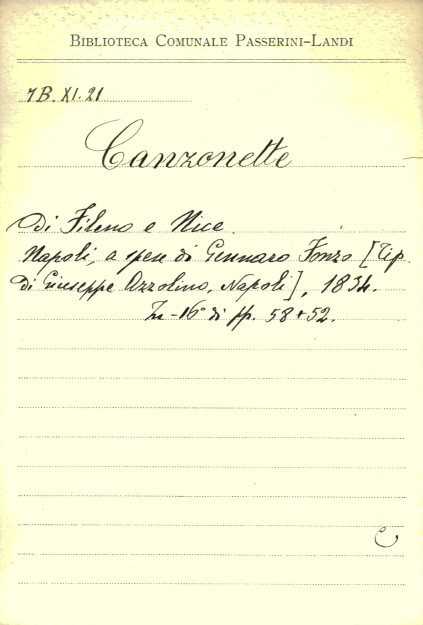 BIBLIOTECA COMUNALE PASSERINI-LANDI
7B. XI. 21
Canzonette
di Fileno e Nice.
Napoli, a spese di Gennaro Fonzo [Tip.
di Giuseppe Azzolino, Napoli], 1834.
In-16° di pp. 58+52.
C